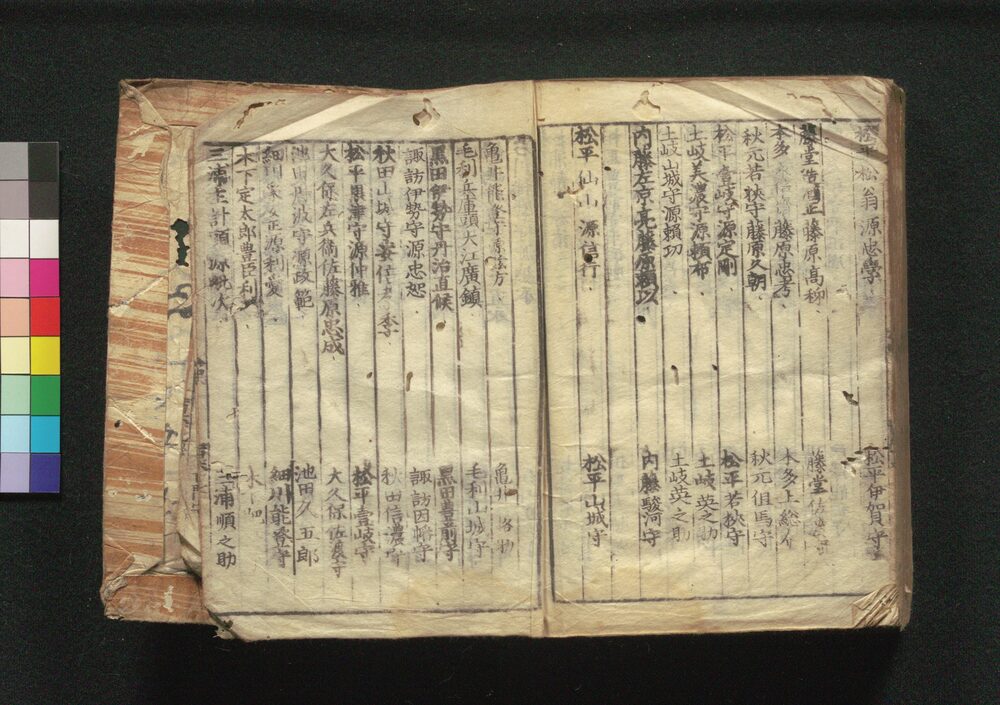 松平松翁源忠學 松平伊賀守
藤堂 藤原高柳 藤堂佐
本多 藤原忠考 本多上総介
秋元若狭守藤原久朝 秋元但馬守
松平壹岐守源定剛 松平若狭守
土岐美濃守源頼布 土岐英之助
土岐山城守源頼功 土岐英之助
内藤左京亮藤原頼以 内藤駿河守
松平仙山源信行 松平山城守
亀井能登守 亀井
毛利兵庫頭大江廣鎮 毛利山城守
黒田伊勢守丹治直候 黒田豊前守
諏訪伊勢守源忠恕 諏訪因幡守
秋田山城守安倍 季 秋田信濃守
松平 津守源仲雅 松平壹岐守
大久保左兵衛佐藤原忠成 大久保佐渡守
池田丹波守源政範 池田久五郎
細川采女正源利愛 細川能登守
木下定太郎豊臣利 木下
三浦主計頭源 次 三浦順之助